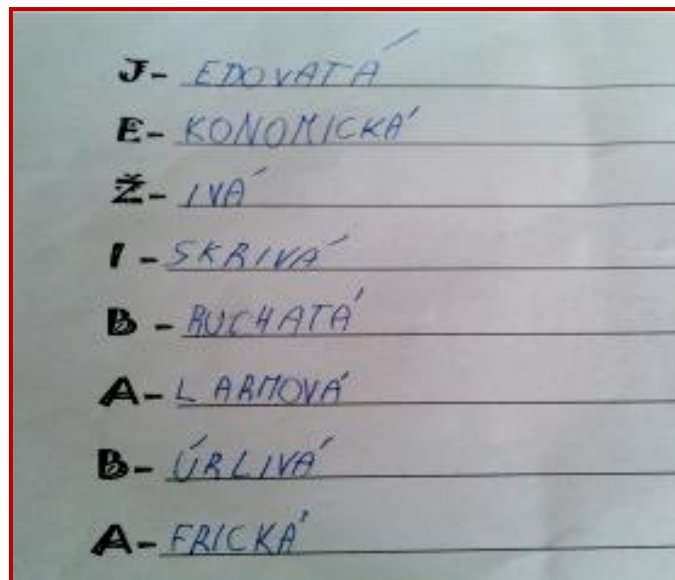 J- EDOVATÁ
E- KONOMICKÁ
Ž- IVÁ
I- SKRIVÁ
B- RUCHATÁ
A- LARMOVÁ
B- ÚRLIVÁ
A- FRICKÁ